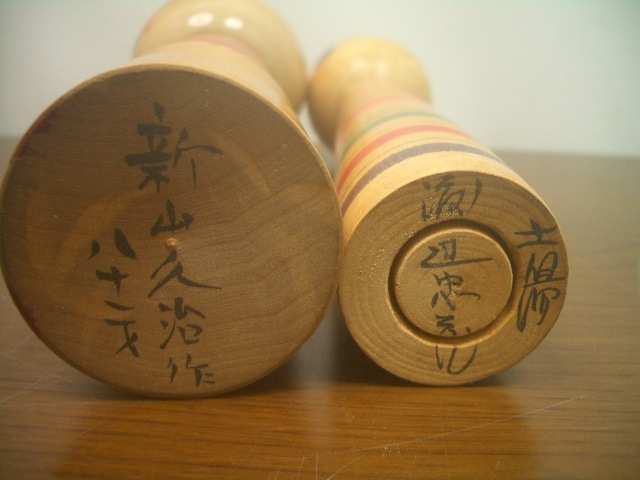 新山久治作
八十二才
土湯
渡辺忠雄